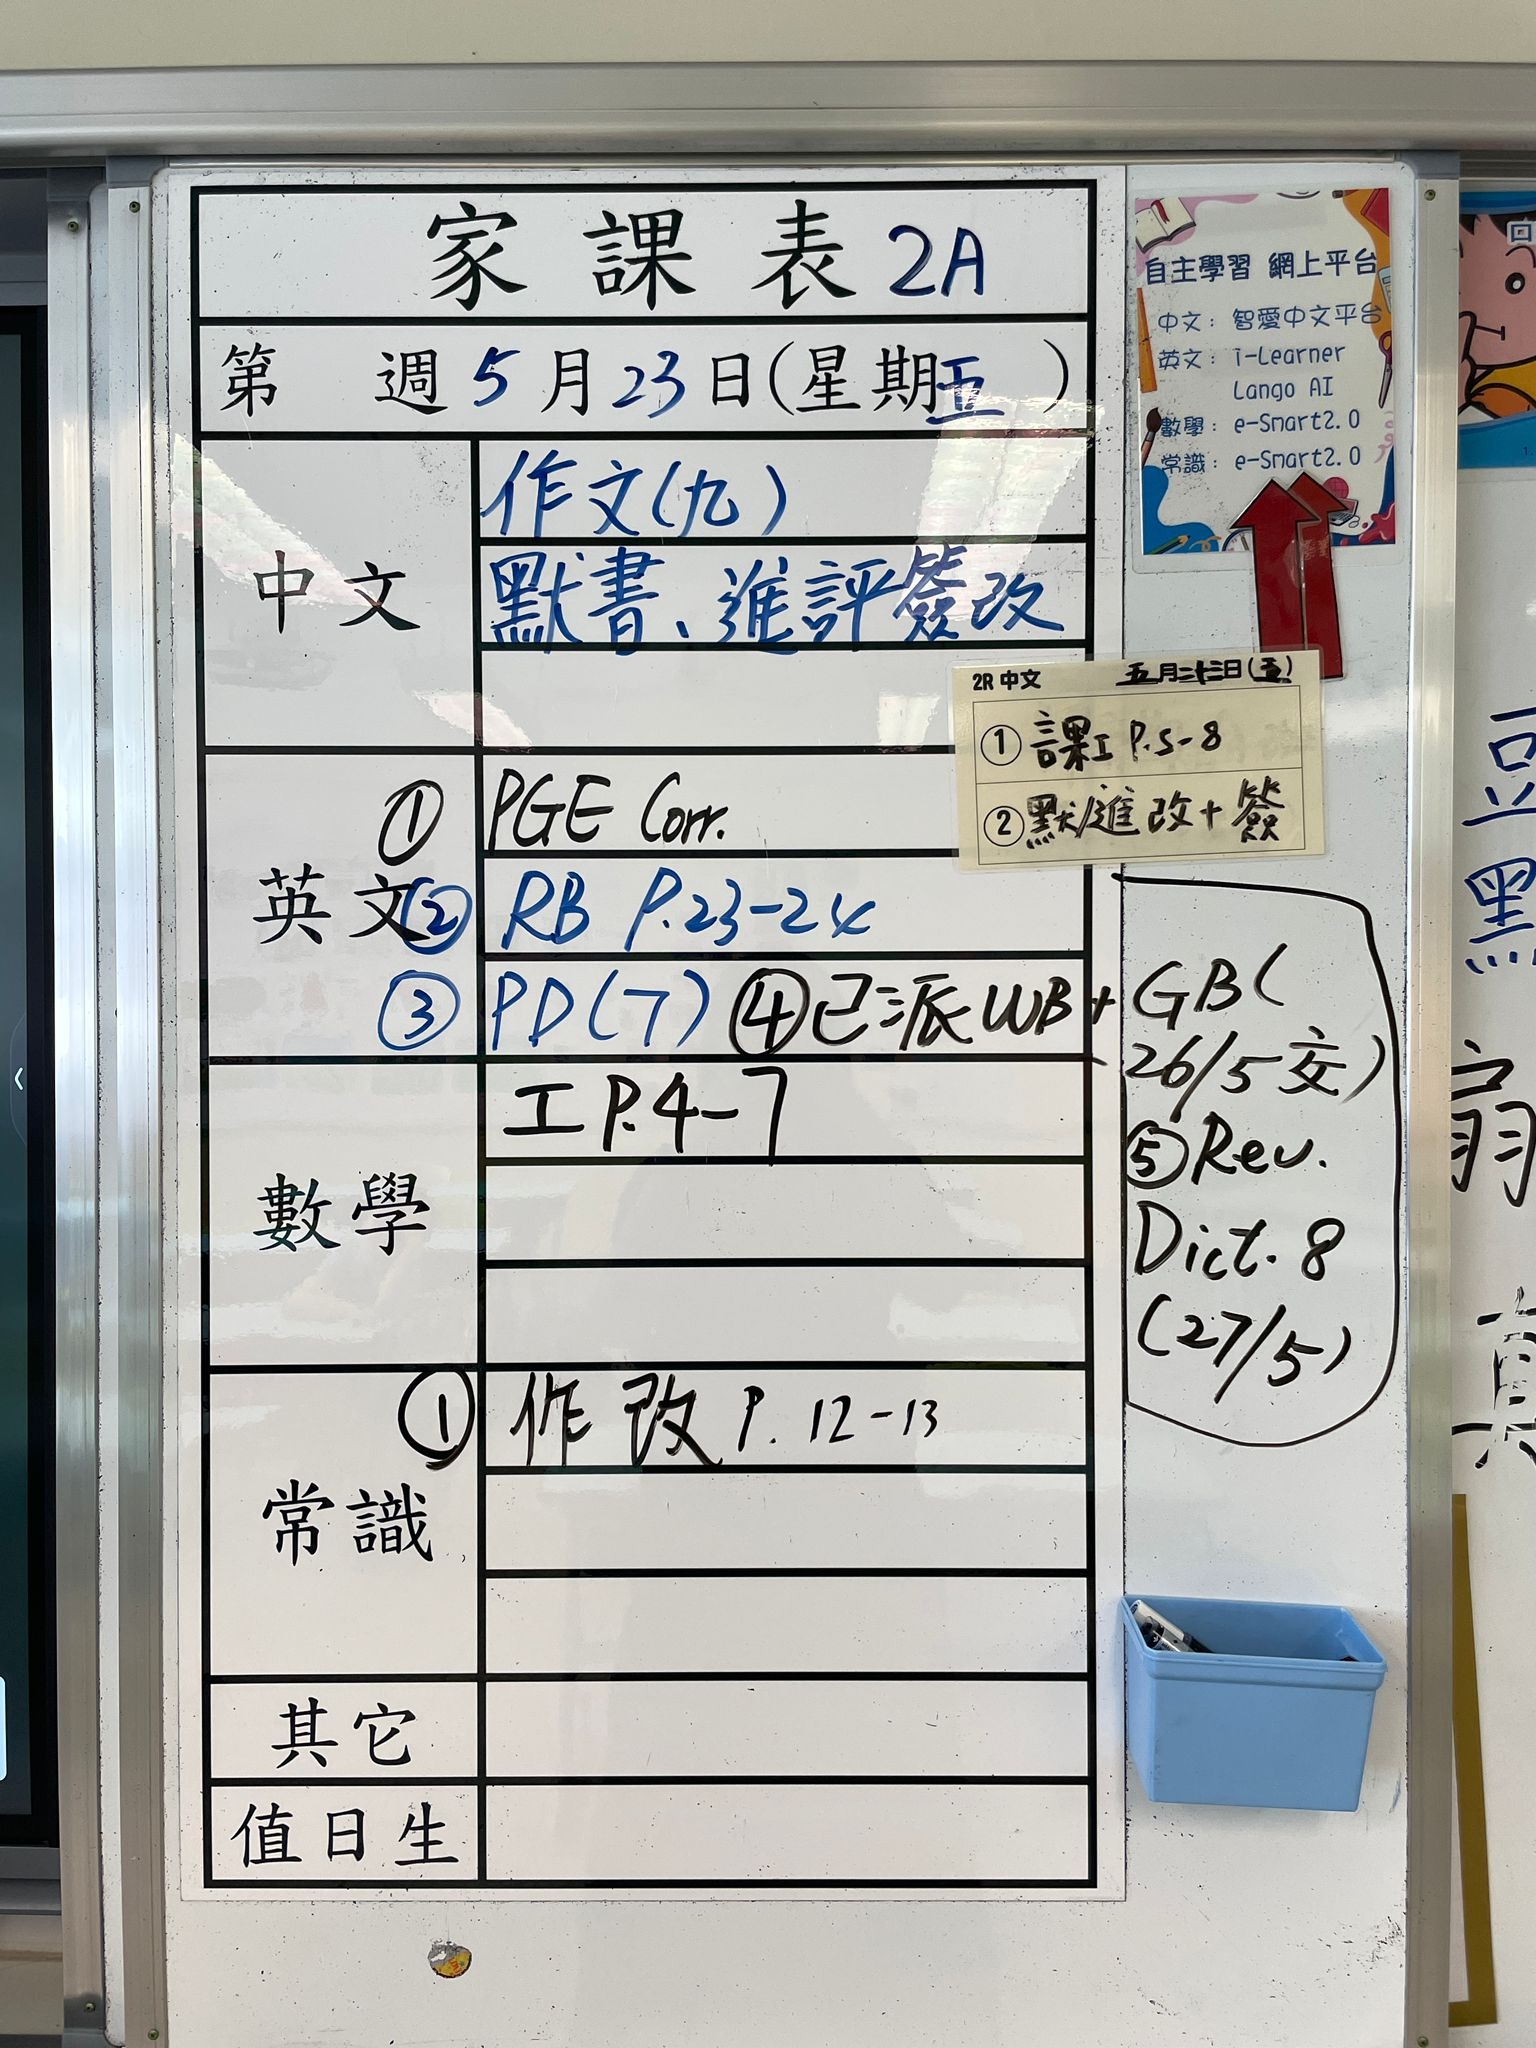 家課表 2A
第 週 5月23日(星期五)
中文
作文(九)
默書、進評簽改
2R 中文 五月二十三日(五)
① 課工 P.5-8
② 默/進改+簽
英文
① PGE Corr.
② RB P.23-24
③ PD(7) ④已派WB+GB(
26/5交)
⑤Rev.
Dict. 8
(27/5)
數學
工 P.4-7
常識
① 作改 P. 12-13
其它
值日生
自主學習 網上平台
中文: 智愛中文平台
英文: i-Learner
Lango AI
數學: e-Smart2.0
常識: e-Smart2.0
回
豆
黑
扇
真